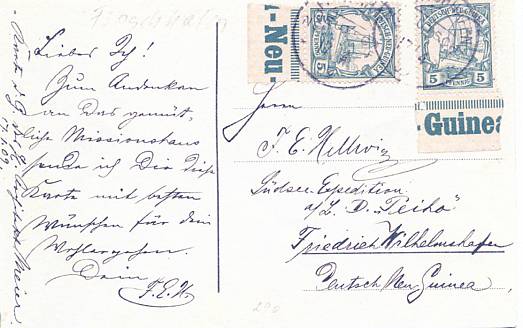 Finschhafen
Liebes Ich!
Zum Andenken
an das gemüt-
liche Missionshaus
sende ich Dir diese
Karte mit besten
Wünschen für dein
Wohlergehen.
Dein
F.E.H.
Karte d.
17.7.09.
-Neu-
DEUTSCH-NEU-GUINEA
5 PFENNIG 5
DEUTSCH-NEU-GUINEA
5 PFENNIG 5
-Guinea
Herrn
F. E. Hellwig
Südsee-Expedition
a/L. D. „Peiho"
Friedrich Wilhelmshafen
Deutsch Neu Guinea